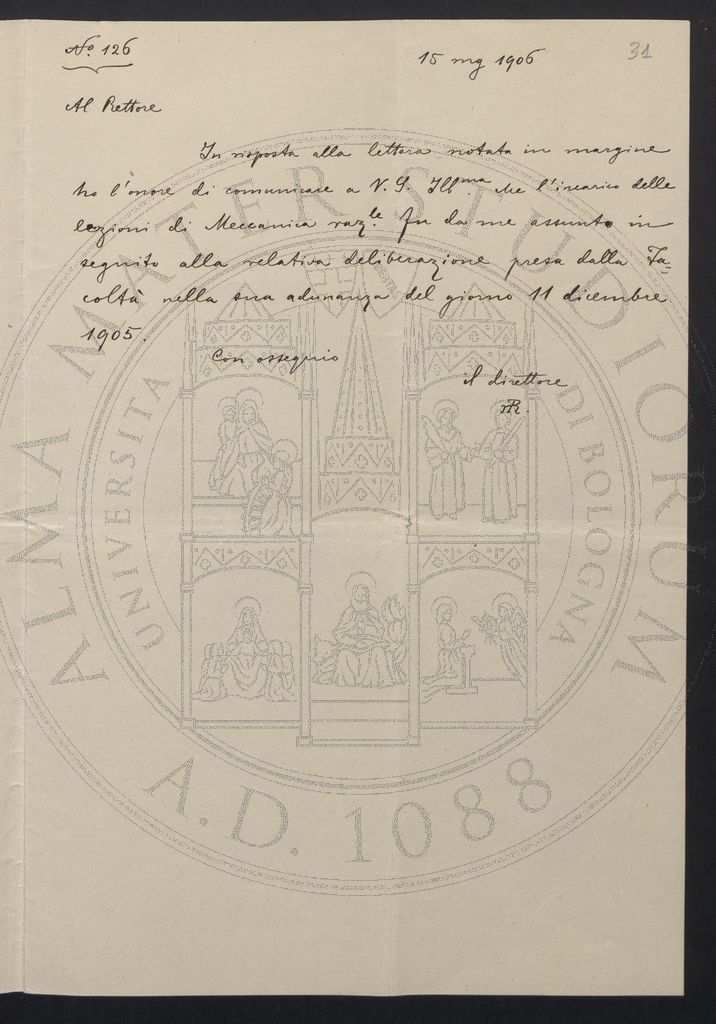 No. 126
15 mg 1906
31
Al Rettore
In risposta alla lettera notata in margine
ho l'onore di comunicare a V. S. Ill.ma che l'incarico delle
lezioni di Meccanica raz.le fu da me assunto in
seguito alla relativa deliberazione presa dalla Fa=
coltà nella sua adunanza del giorno 11 dicembre
1905.
Con ossequio
il direttore
ALMA MATER STUDIORUM
UNIVERSITA DI BOLOGNA
A.D. 1088